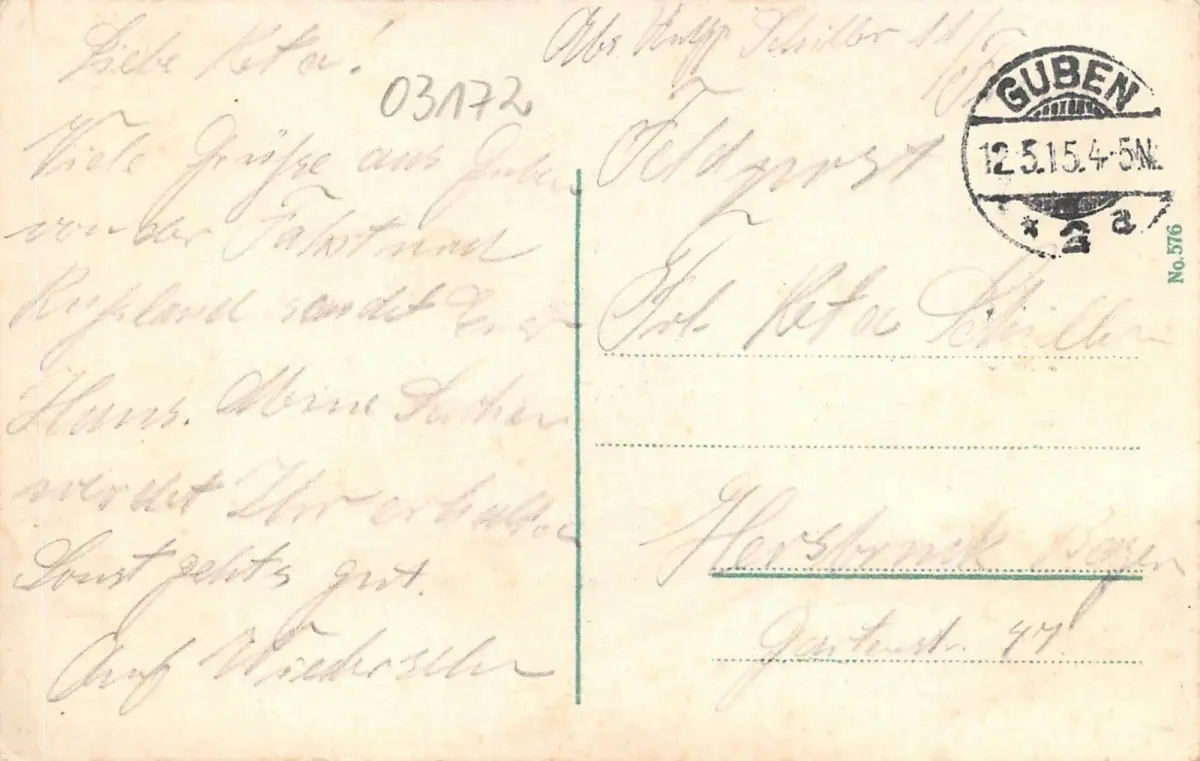 Liebe Reta!
03172
Viele Grüße aus Guben
von der Fahrt nach
Rußland sendet Euer
Hans. Meine Sachen
werdet Ihr erhalten
Sonst gehts gut.
Auf Wiedersehn
Abs. Schiller
GUBEN
12.5.15.4-5N.
* 2 a
Feldpost
Frl. Reta Schiller
Hersbruck Bayern
Gartenstr.
No. 576